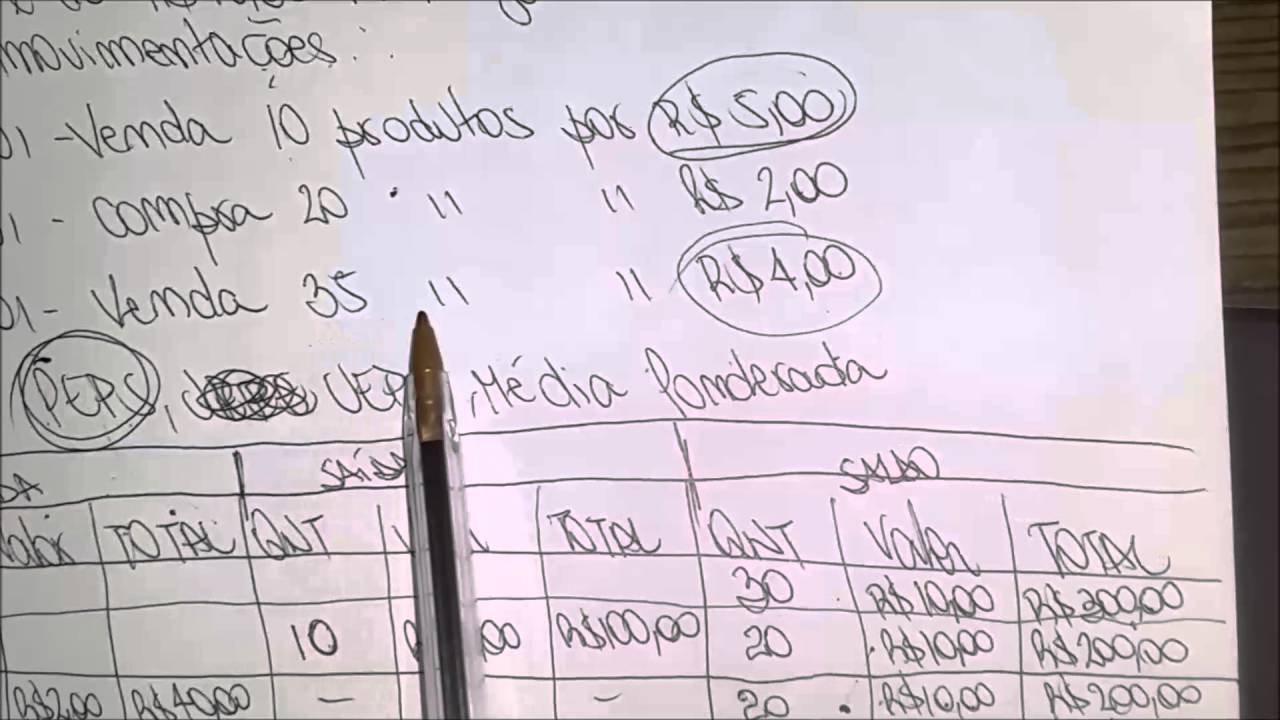 movimentações:
01 - Venda 10 produtos por R$ 5,00
01 - compra 20 " " R$ 2,00
01 - Venda 35 " " R$ 4,00
PEPS, Média Ponderada
SALDO
TOTAL QNT TOTAL QNT Valor TOTAL
30 R$10,00 R$300,00
10 R$100,00 20 R$10,00 R$200,00
R$2,00 R$40,00 - - 20 R$10,00 R$200,00